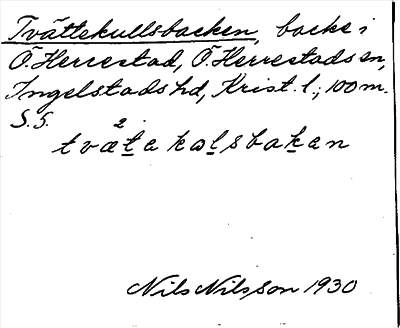 Tvättekullsbacken, backe i
Ö. Herrestad, Ö. Herrestads sn,
Ingelstads hd, Krist. l.; 100 m.
S. 5.
2
tvætekolsbaken
Nils Nilsson 1930